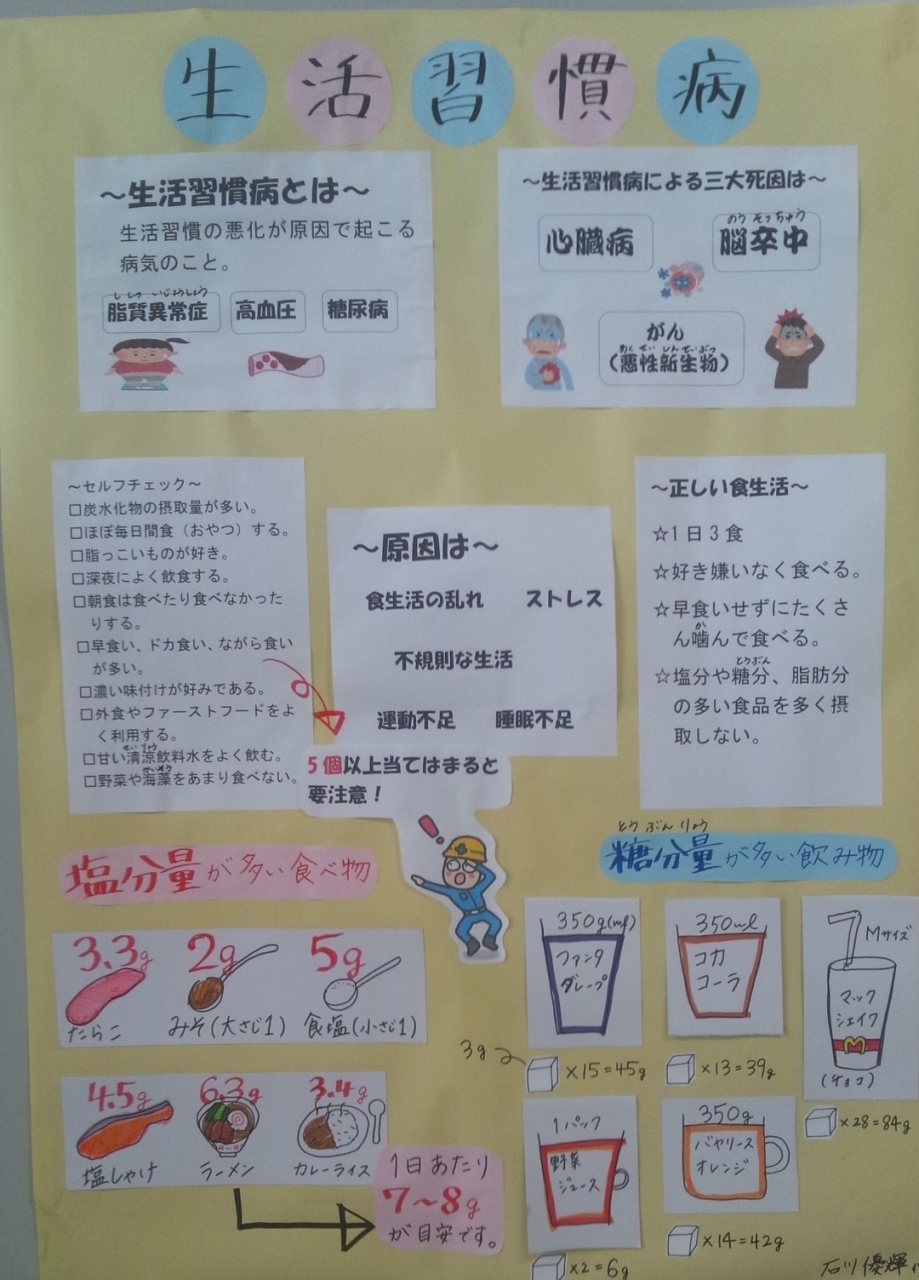 生活習慣病
～生活習慣病とは～
生活習慣の悪化が原因で起こる
病気のこと。
ししついじょうしょう
脂質異常症
高血圧
糖尿病
～生活習慣病による三大死因は～
心臓病
のうそっちゅう
脳卒中
がん
あくせいしんせいぶつ
(悪性新生物)
～セルフチェック～
□炭水化物の摂取量が多い。
□ほぼ毎日間食（おやつ）する。
□脂っこいものが好き。
□深夜によく飲食する。
□朝食は食べたり食べなかった
りする。
□早食い、ドカ食い、ながら食い
が多い。
□濃い味付けが好みである。
□外食やファーストフードをよ
く利用する。
せいりょう
□甘い清涼飲料水をよく飲む。
かいそう
□野菜や海藻をあまり食べない。
～原因は～
食生活の乱れ ストレス
不規則な生活
運動不足 睡眠不足
5個以上当てはまると
要注意！
～正しい食生活～
☆1日3食
☆好き嫌いなく食べる。
☆早食いせずにたくさ
か
ん噛んで食べる。
とうぶん
☆塩分や糖分、脂肪分
の多い食品を多く摂
取しない。
塩分量が多い食べ物
3.3g
たらこ
2g
みそ(大さじ1)
5g
食塩(小さじ1)
4.5g
塩しゃけ
6.3g
ラーメン
3.4g
カレーライス
1日あたり
7～8g
が目安です。
!
とうぶんりょう
糖分量が多い飲み物
350g(ml)
ファンタ
グレープ
3g
×15=45g
350ml
コカ
コーラ
×13=39g
Mサイズ
マック
シェイク
M
(チョコ)
×28=84g
1パック
野菜
ジュース
×2=6g
350g
バヤリース
オレンジ
×14=42g
石川優輝